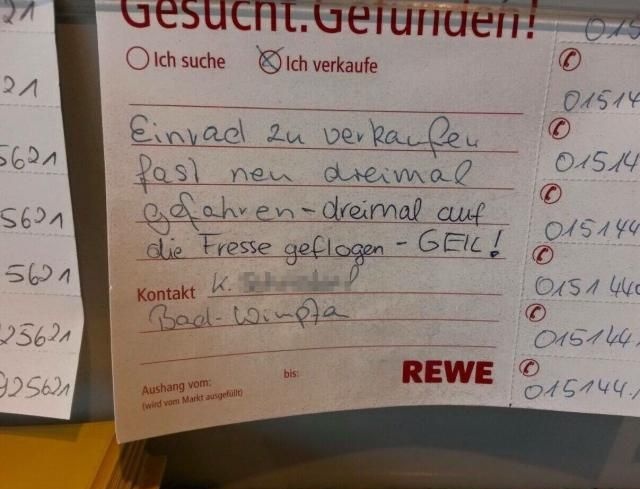 Gesucht. Gefunden!
Ich suche Ich verkaufe
Einrad zu verkaufen
fast neu dreimal
gefahren - dreimal auf
die Fresse geflogen - GEIL!
Kontakt K.
Bad-Wimpfa
Aushang vom: bis:
(wird vom Markt ausgefüllt)
REWE
21
21
5621
5621
5621
25621
925621
015
01514
01514
015144
0151440
015144.
015144.